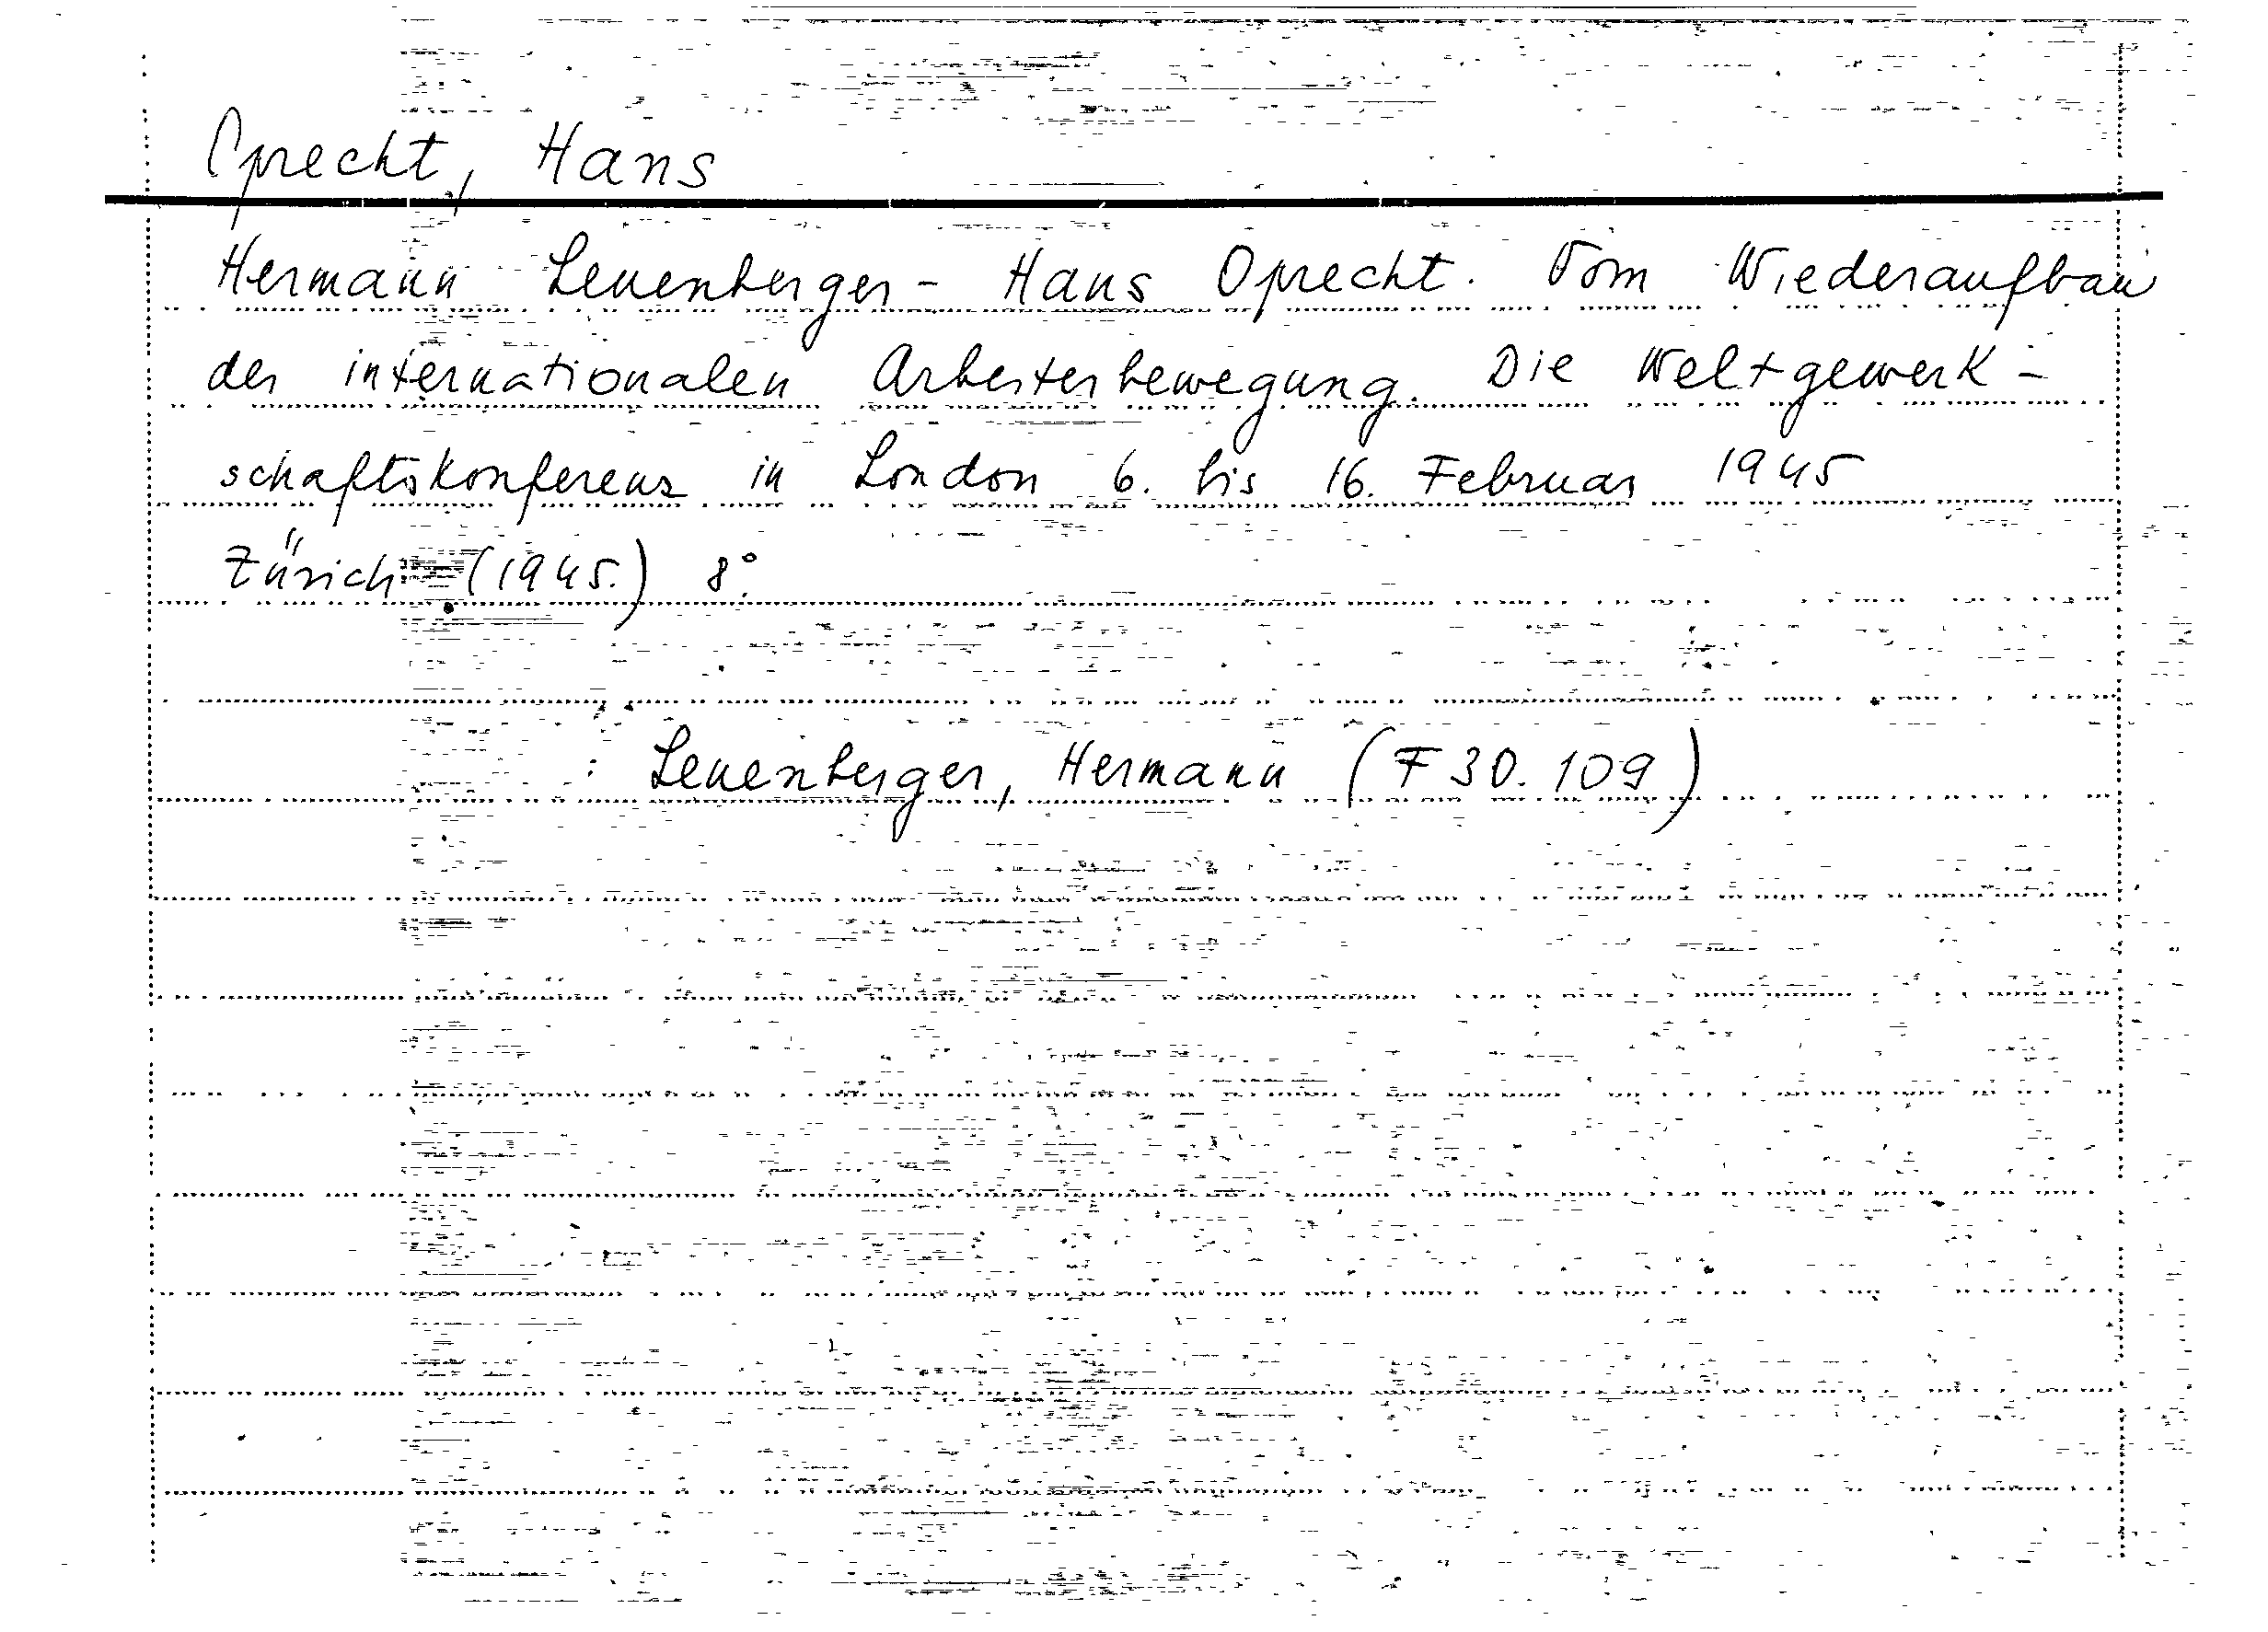 Oprecht, Hans
Hermann Leuenberger - Hans Oprecht. Vom Wiederaufbau
der internationalen Arbeiterbewegung. Die Weltgewerk-
schaftskonferenz in London 6. bis 16. Februar 1945
Zürich (1945.) 8°.
: Leuenberger, Hermann (F 30.109)